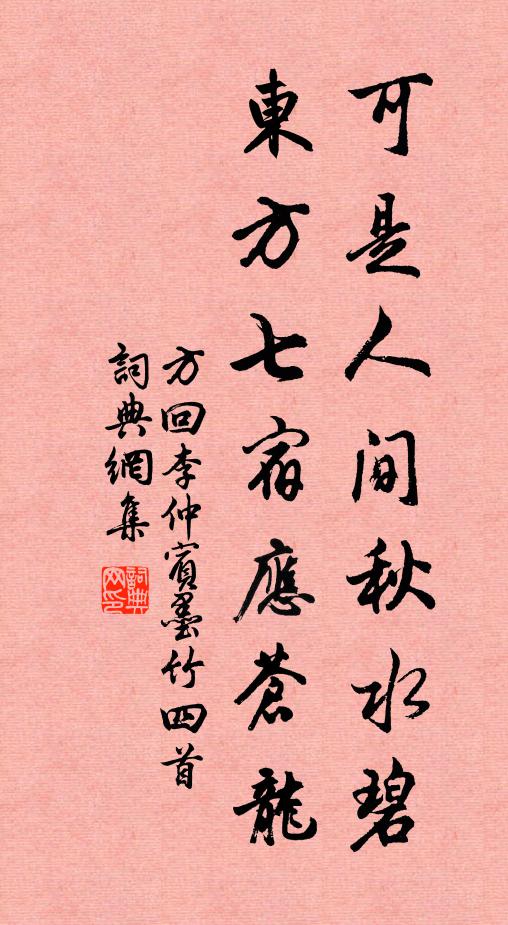 可是人间秋水碧
東方七宿應蒼龍
方回李仲賓墨竹四首
詞典網集
詞典网印